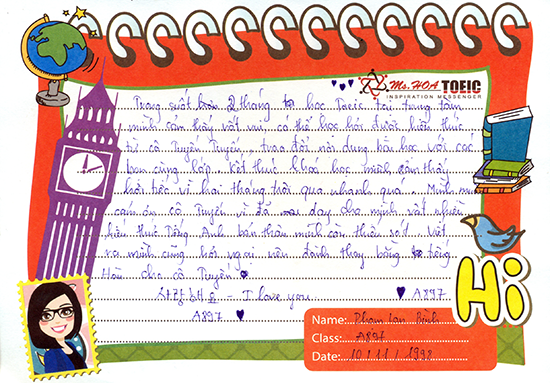 Ms. HOA TOEIC
INSPIRATION MESSENGER
Trong suốt 2 tháng học Toeic tại trung tâm
mình cảm thấy rất vui, có thể học hỏi được kiến thức
từ cô Tuyền, trao đổi nội dung bài học với các
bạn cùng lớp. Kết thúc khoá học mình cảm thấy
hối tiếc vì hai tháng trôi qua nhanh quá... Mình
cảm ơn cô Truyền vì đã dạy cho mình rất nhiều
kiến thức Tiếng Anh bản thân mình còn thiếu sót. Viết
ra mình cũng hơi ngại nên đành thay bằng tiếng
Hàn cho cô Tuyền
사랑해요 - I love you. A897
A897
Hi
Name: Phạm Lan Bình
Class: A897
Date: 10/11/1998